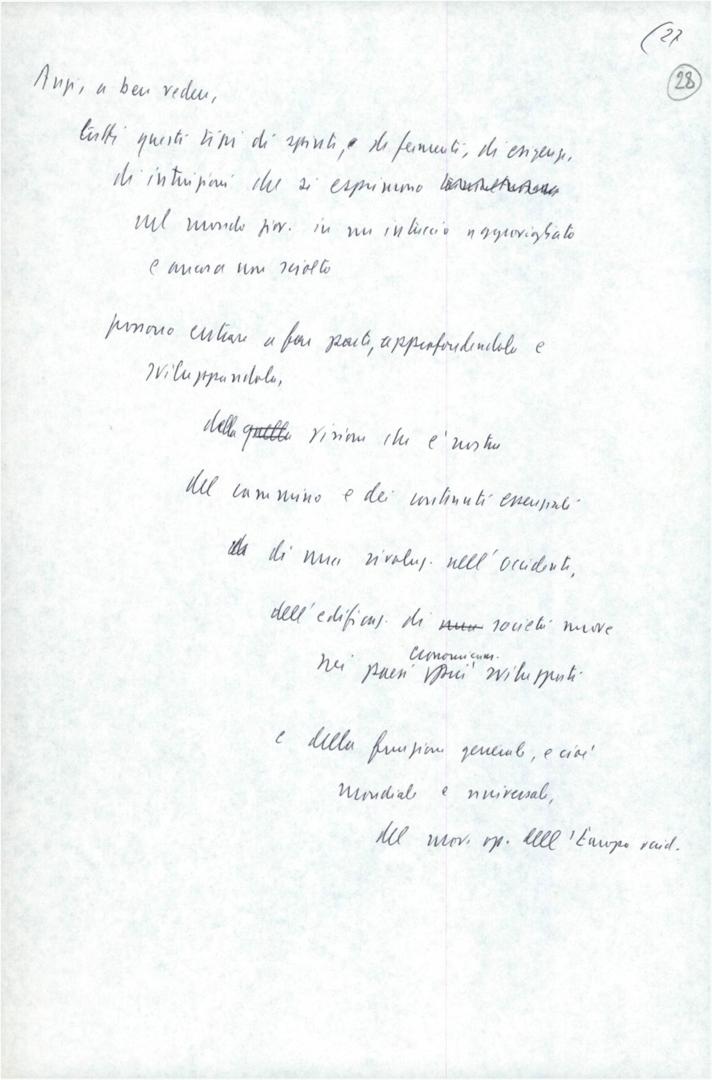 (27
28
Anzi, a ben vedere,
tutti questi tipi di spinte, e di fermenti, di esigenze,
di intuizioni che si esprimono
nel mondo giov. in un intreccio aggrovigliato
e ancora non sciolto
possono entrare a far parte, approfondendola e
sviluppandola,
della quella visione che è nostra
del cammino e dei contenuti essenziali
di una rivoluz. nell'occidente,
dell'edificaz. di una società nuove
economicam.
nei paesi più sviluppati
e della funzione generale, e cioè
mondiale e universale,
del mov. op. dell'Europa occid.